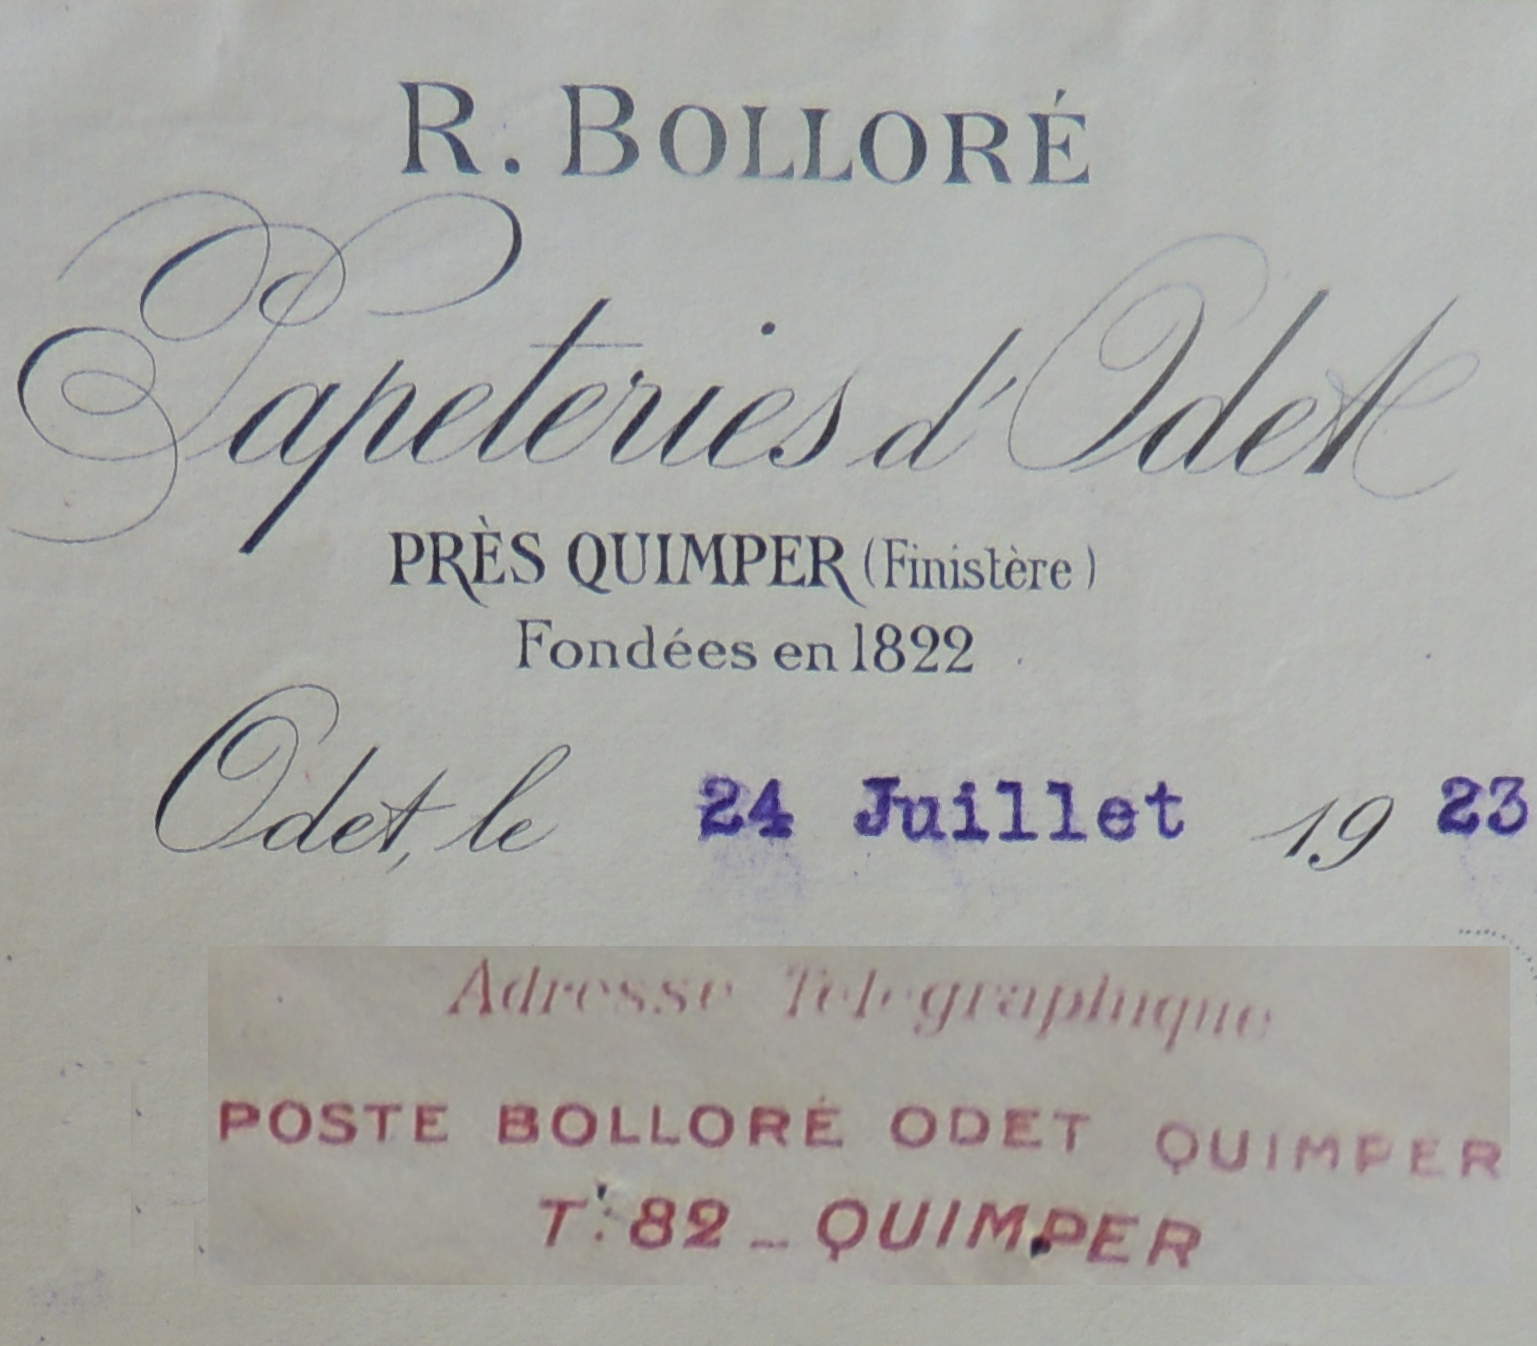 R. BOLLORÉ
Papeteries d'Odet
PRÈS QUIMPER (Finistère)
Fondées en 1822
Odet, le 24 Juillet 1923
Adresse Télégraphique
POSTE BOLLORÉ ODET QUIMPER
T: 82 _ QUIMPER